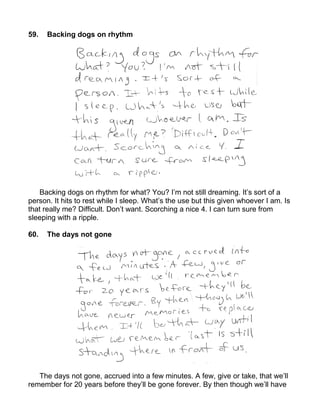 59. Backing dogs on rhythm
Backing dogs on rhythm for
what? You? I'm not still
dreaming. It's sort of a
person. It hits to rest while
I sleep. What's the use but
this given whoever I am. Is
that really me? Difficult. Don't
want. Scorching a nice 4. I
can turn sure from sleeping
with a ripple.
Backing dogs on rhythm for what? You? I'm not still dreaming. It's sort of a
person. It hits to rest while I sleep. What's the use but this given whoever I am. Is
that really me? Difficult. Don't want. Scorching a nice 4. I can turn sure from
sleeping with a ripple.
60. The days not gone
The days not gone, accrued into
a few minutes. A few, give or
take, that we'll remember
for 20 years before they'll be
gone forever. By then though we'll
have newer memories to replace
them. It'll be that way until
what we remember last is still
standing there in front of us.
The days not gone, accrued into a few minutes. A few, give or take, that we'll
remember for 20 years before they'll be gone forever. By then though we'll have